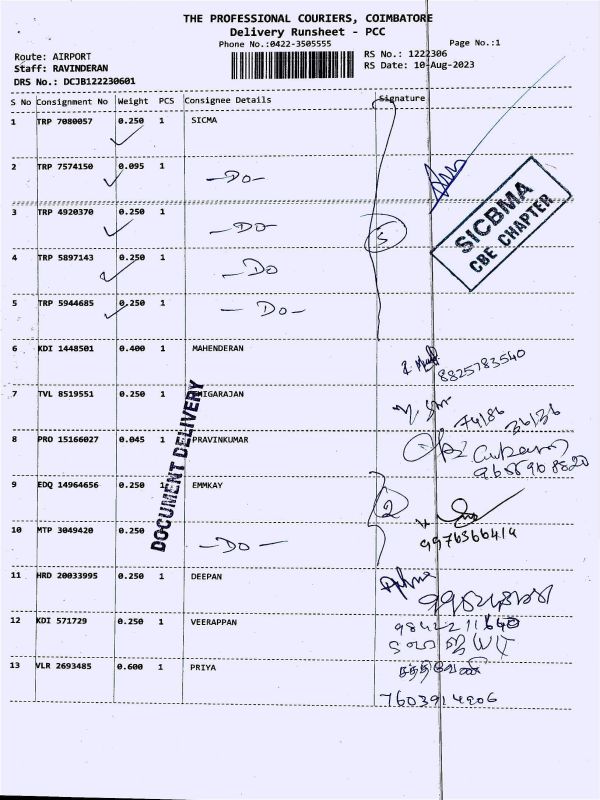 THE PROFESSIONAL COURIERS, COIMBATORE
Delivery Runsheet - PCC
Phone No.:0422-3505555 Page No.:1
Route: AIRPORT RS No.: 1222306
Staff: RAVINDERAN RS Date: 10-Aug-2023
DRS No.: DCJB122230601
S No Consignment No Weight PCS Consignee Details Signature
1 TRP 7080057 0.250 1 SICMA
2 TRP 7574150 0.095 1 -Do-
SICBMA
CBE CHAPTER
3 TRP 4920370 0.250 1 -Do-
5
4 TRP 5897143 0.250 1 -Do
5 TRP 5944685 0.250 1 -Do-
6 KDI 1448501 0.400 1 MAHENDERAN
8825783540
7 TVL 8519551 0.250 1
74186 36136
8 PRO 15166027 0.045 1 PRAVINKUMAR
DOCUMENT DELIVERY
9 EDQ 14964656 0.250 EMMKAY 2
10 MTP 3049420 0.250 -Do-
11 HRD 20033995 0.250 1 DEEPAN
12 KDI 571729 0.250 1 VEERAPPAN
9842211640
13 VLR 2693485 0.600 1 PRIYA
7603914906